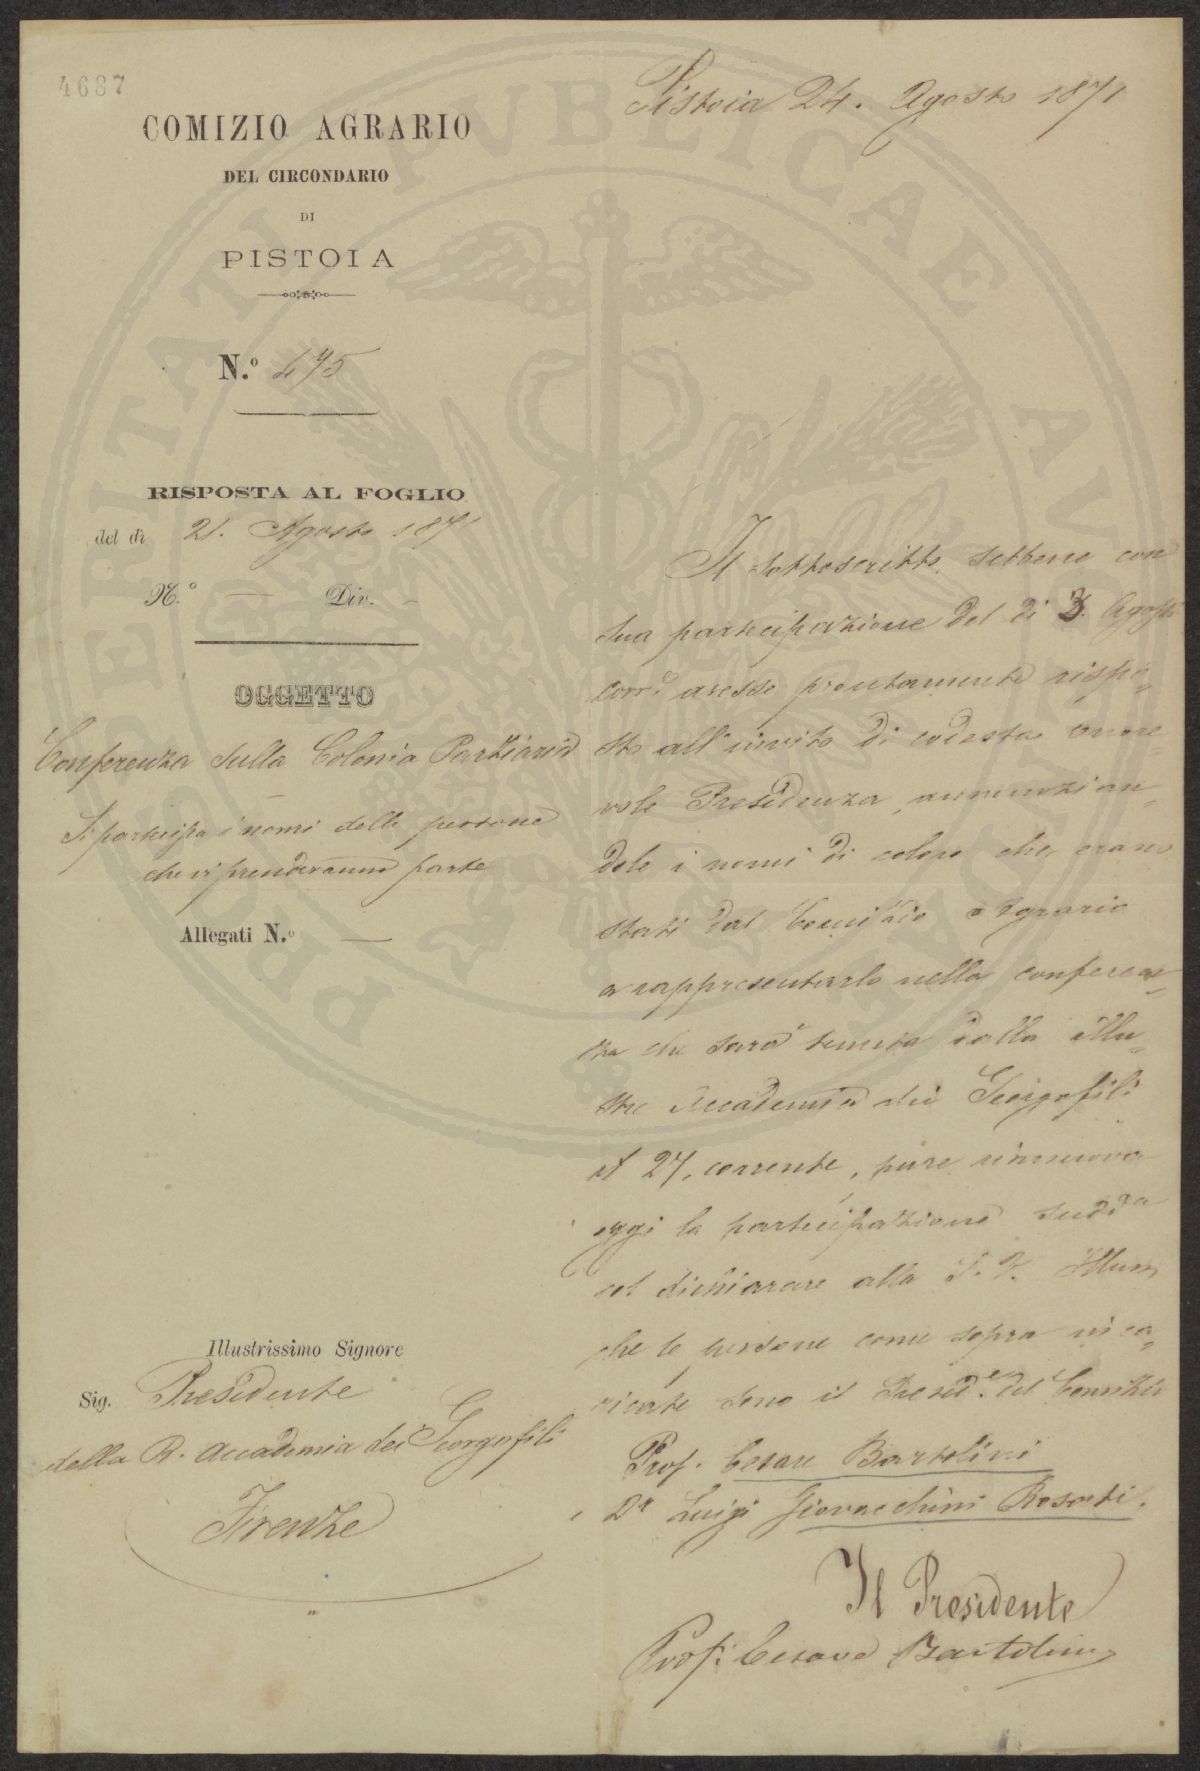 4687
COMIZIO AGRARIO
DEL CIRCONDARIO
DI
PISTOIA
N.º 475
RISPOSTA AL FOGLIO
del dì 21. Agosto 1871
N.º — Div. –
OGGETTO
Conferenza sulla Colonia Parziaria
–
Si partecipa i nomi delle persone
che vi prenderanno parte
Allegati N.º —
Illustrissimo Signore
Sig. Presidente
della R. Accademia dei Georgofili
Firenze
Pistoia 24. Agosto 1871
Il sottoscritto sebbene con
sua partecipazione del dì 3. Agosto
corr.e avesse prontamente rispo=
sto all'invito di codesta onore=
vole Presidenza annunzian=
dole i nomi di coloro che erano
stati dal Comizio Agrario
a rappresentarlo nella conferen=
za che sarà tenuta dalla illu=
stre Accademia dei Georgofili
il 27, corrente, pure rinnuova
oggi la partecipazione sudd.a
col dichiarare alla S. V. Illum
che le persone come sopra inca=
ricate sono il Presid.e del Comizio
Prof. Cesare Bartolini
Dr Luigi Giovacchini Rosati.
Il Presidente
Prof: Cesare Bartolini
PROSPERITATI PVBLICAE AVGENDAE